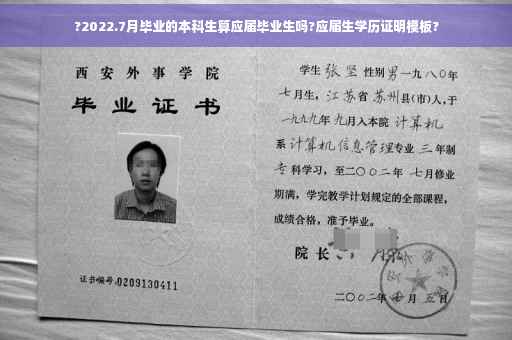 ?2022.7月毕业的本科生算应届毕业生吗?应届生学历证明模板?
西安外事学院
毕业证书
证书编号:0209130411
学生 张坚 性别男一九八〇年
七月生,江苏省苏州县(市)人,于
一九九九年九月入本院计算机
系计算机信息管理专业三年制
专科学习,至二〇〇二年七月修业
期满,学完教学计划规定的全部课程,
成绩合格,准予毕业。
院长
二〇〇二年 月五日